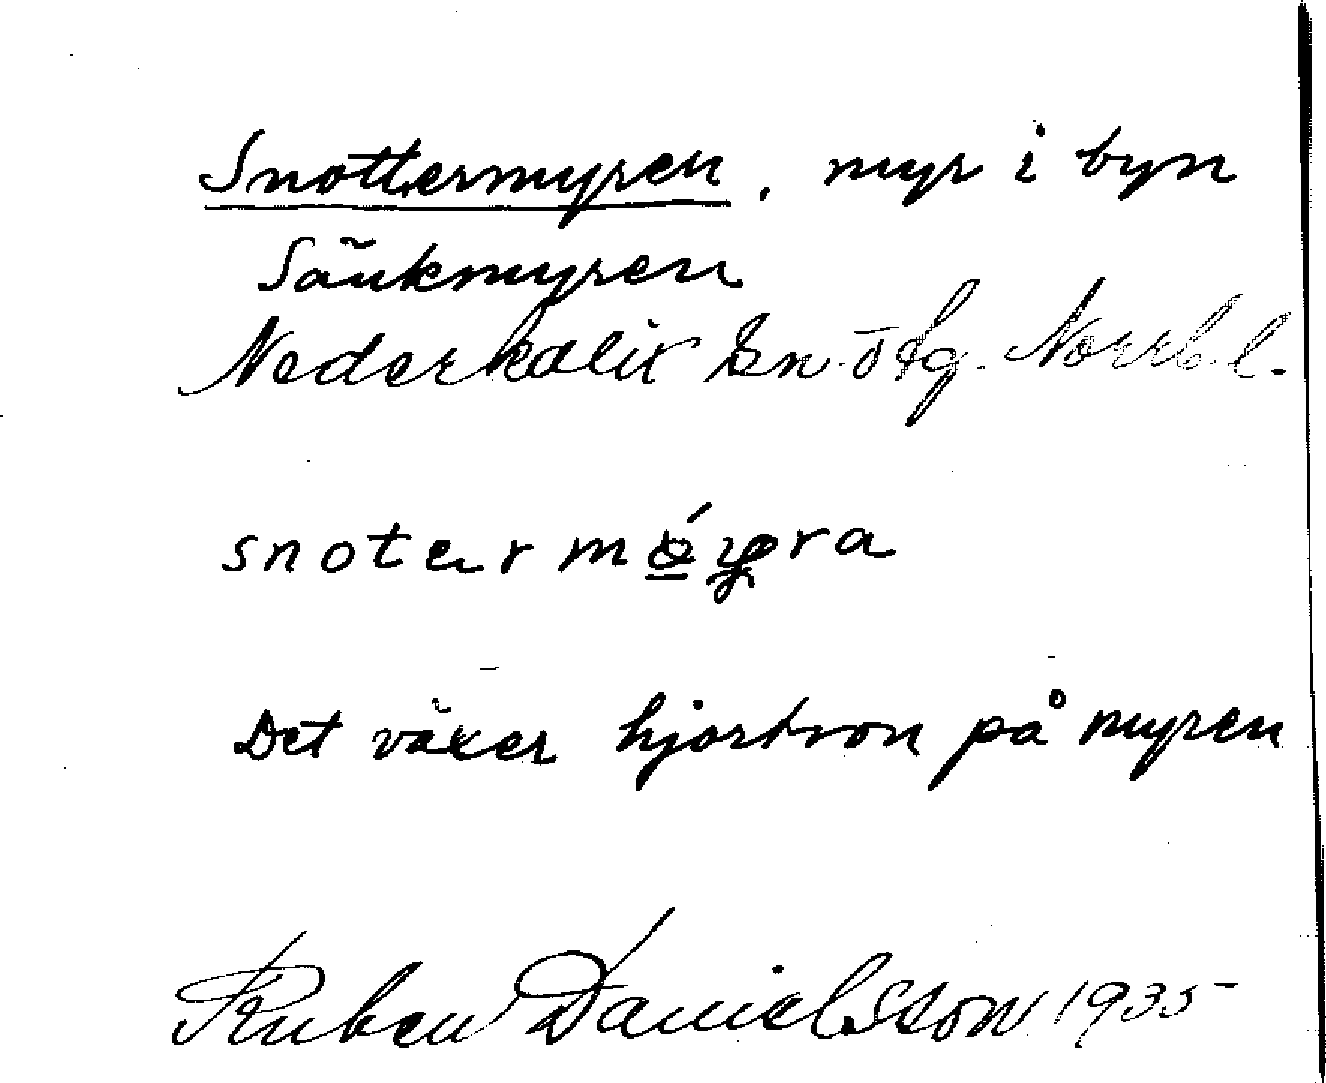 Snottermyren, myr i byn
Sänkmyren
Nederkalix sn. ö tg. Norrb. l.
snotermǿyra
Det växer hjortron på myren
Ruben Danielsson 1935